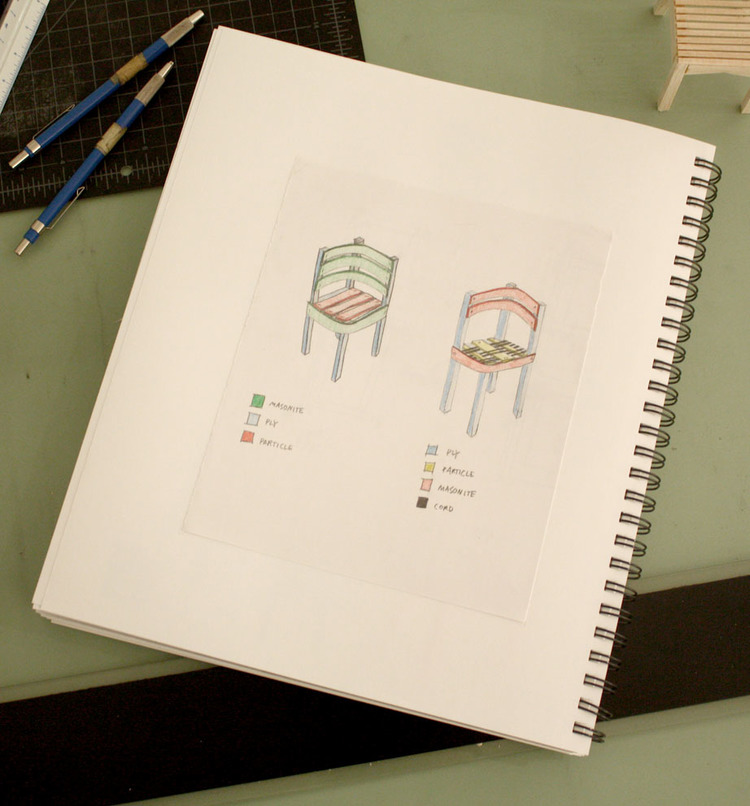 MASONITE
PLY
PARTICLE
PLY
PARTICLE
MASONITE
CORD